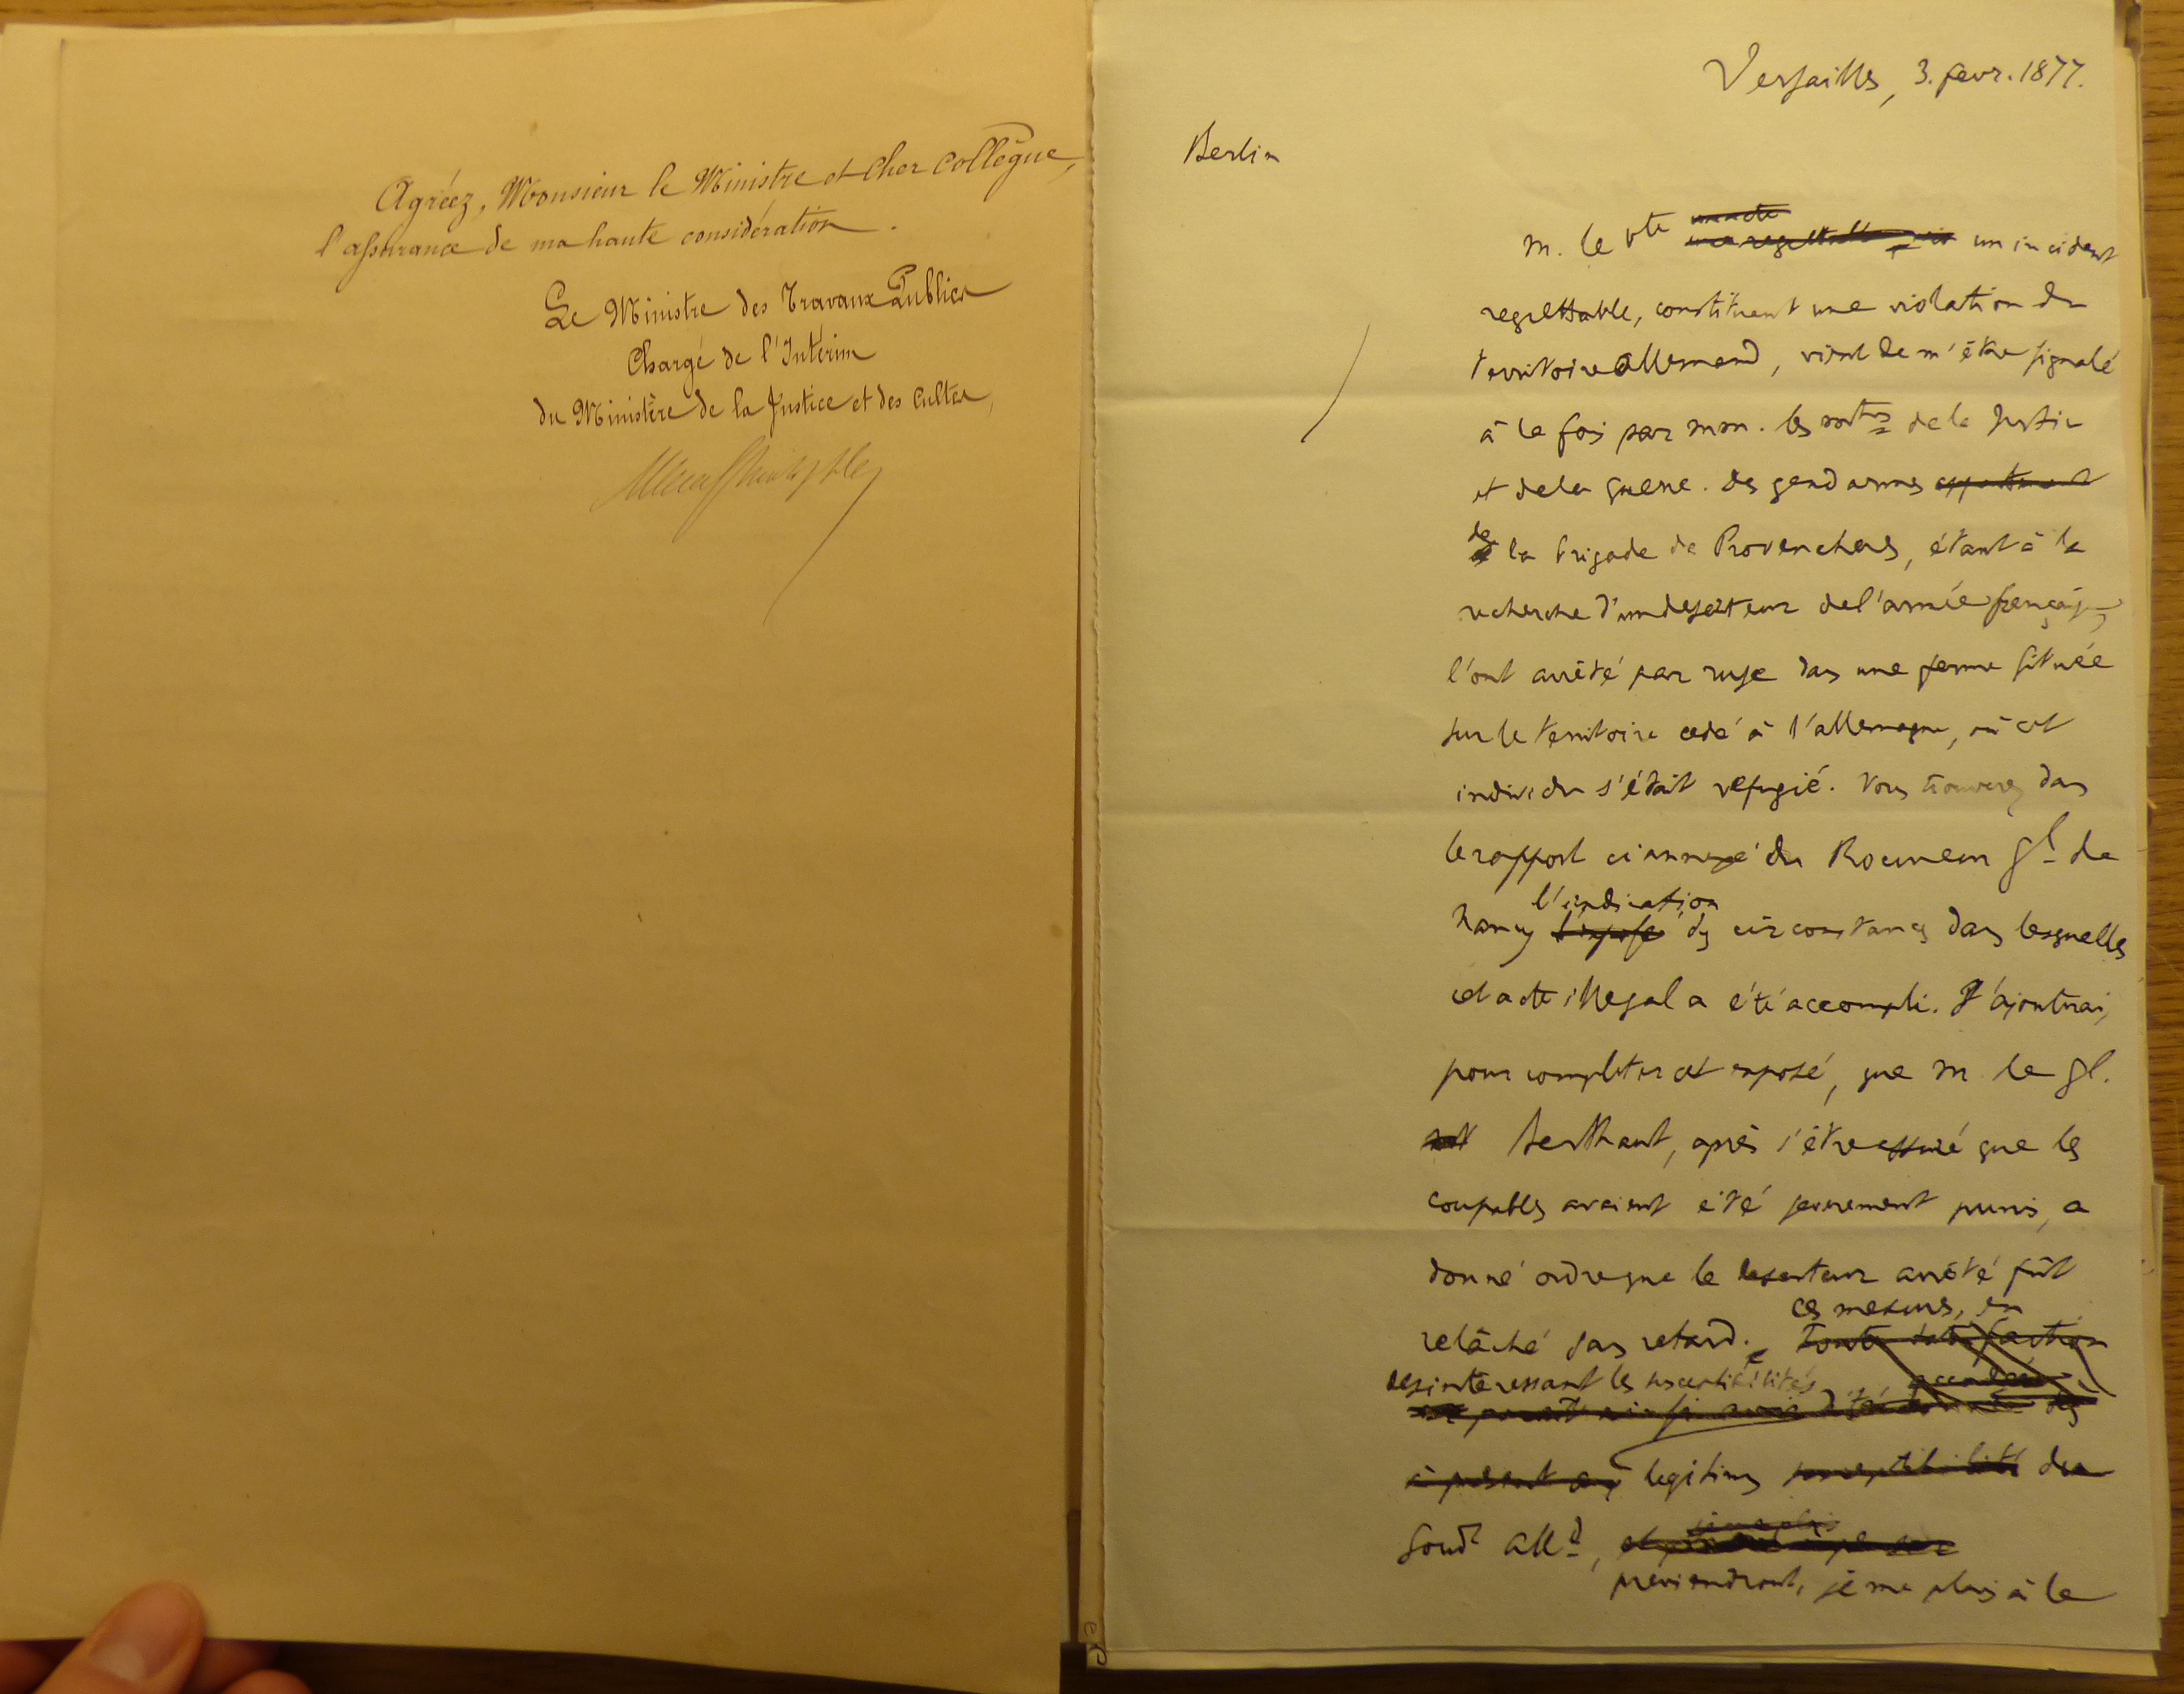 Agréez, Monsieur le Ministre et Cher Collègue,
l'assurance de ma haute considération.
Le Ministre des Travaux Publics
Chargé de l'Intérim
du Ministère de la Justice et des Cultes,
Versailles, 3. fevr. 1877.
Berlin
M. le Vte un incident
regrettable, constituant une violation du
territoire allemand, vient de m'être signalé
à la fois par MM. les de la Justice
et de la guerre. Des gendarmes
de la brigade de Provenchères, étant à la
recherche d'un deserteur de l'armée française,
l'ont arrêté par ruse dans une ferme située
sur le territoire cedé à l'allemagne, où cet
individu s'était refugié. Vous trouverez dans
le rapport ci annexé du Procureur Gl de
l'indication
Nancy l'exposé des circonstances dans lesquelles
cet acte illegal a été accompli. J'ajouterai,
pour completer cet exposé, que M. le Gl.
Berthaut, après s'être assuré que les
coupables avaient été severement punis, a
donné ordre que le deserteur arrêté fût
ces mesures, en
relâché sans retard. Toute satisfaction
desinteressant les susceptibilités
à présent aux legitimes susceptibilités du
Gouvt Alld,
previendront, je me plais à le